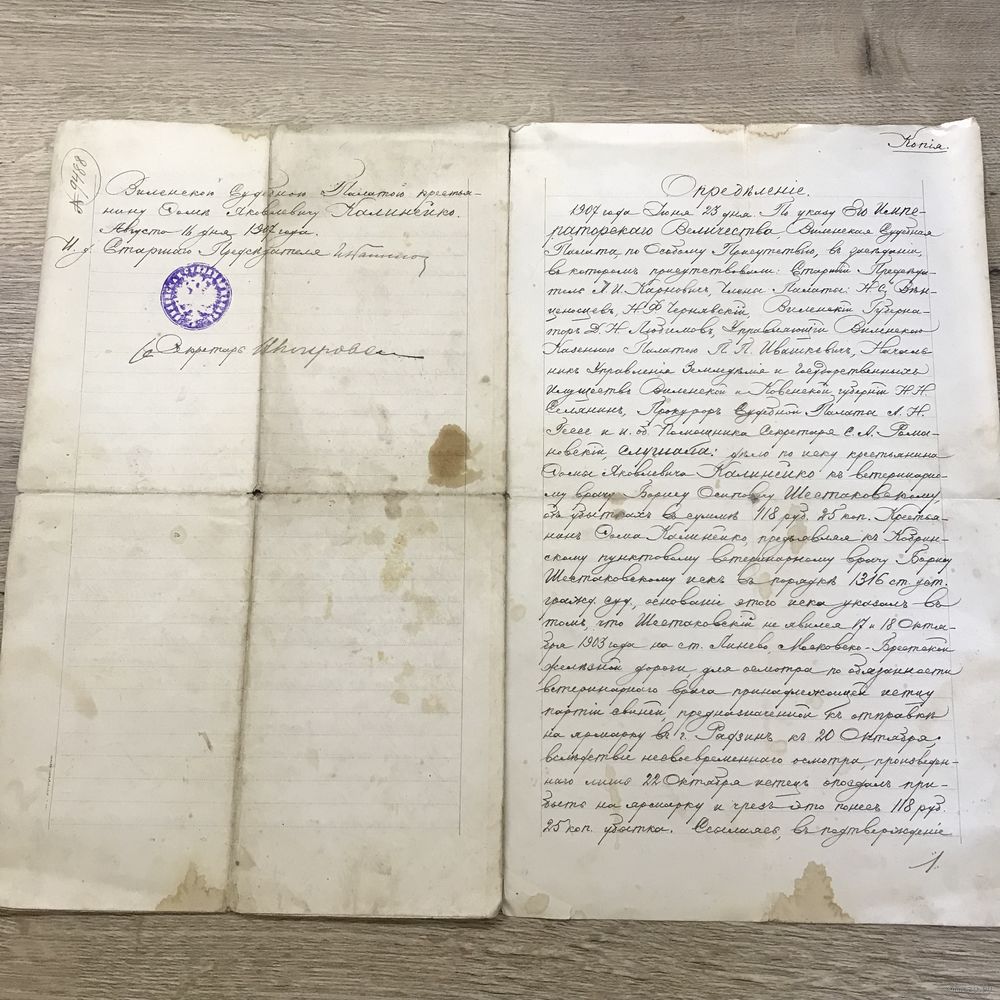 № 9488
Виленскою Судебною Палатою крестья-
нину Фоме Яковлевичу Калиненко.
Августа 16 дня 1907 года.
И. д. Старшаго Председателя
Секретарь
Копія.
Опредѣленіе.
1907 года Іюня 23 дня. По указу Его Импе-
раторскаго Величества, Виленская Судебная
Палата по Особому Присутствію, въ засѣданіи,
въ которомъ присутствовали: Старшій Предсѣда-
тель А. И. Карновичъ, Члены Палаты: Н. С.
Н. Ф. Чернявскій, Виленскій Губерна-
торъ Д. Н. Любимовъ, Управляющій Виленскою
Казенною Палатою П. П. Ивашкевичъ, Началь-
никъ Управленія Земледѣлія и Государственныхъ
Имуществъ Виленской и Ковенской губерніи Н. Н.
Селянинъ, Прокуроръ Судебной Палаты А. Н.
Гессе и и. об. Помощника Секретаря С. А. Рома-
новскій слушала: дѣло по иску крестьянина
Фомы Яковлевича Калиненко къ ветеринарно-
му врачу Борису Осиповичу Шестаковскому,
объ убыткахъ въ суммѣ 118 руб. 25 коп. Крестья-
нинъ Фома Калиненко, предъявляя къ Кобрин-
скому пунктовому ветеринарному врачу Борису
Шестаковскому искъ въ порядкѣ 1316 ст. уст.
гражд. суд., основаніе этого иска указалъ въ
томъ, что Шестаковскій не явился 17 и 18 Октя-
бря 1903 года на ст. Линево, Московско-Брестской
желѣзной дороги для осмотра по обязанности
ветеринарнаго врача принадлежащей истцу
партіи свиней, предназначенной къ отправкѣ
на ярмарку въ г. Радзинъ къ 20 Октября;
вслѣдствіе несвоевременнаго осмотра, произведен-
наго лишь 22 Октября истецъ опоздалъ при-
быть на ярмарку и чрезъ это понесъ 118 руб.
25 коп. убытка. Ссылаясь, въ подтвержденіе
1.